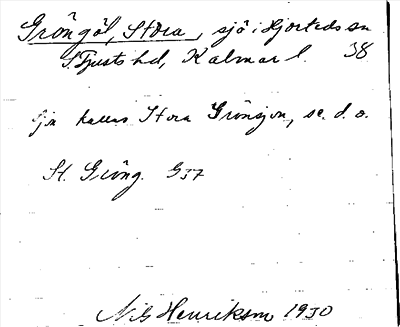 Gröngöl, Stora, sjö i Hjorteds sn
S. Tjusts hd, Kalmar l. 38
Sjn kallas Stora Grönsjön, se. d. o.
St. Gröng. G37
Nils Henriksson 1930